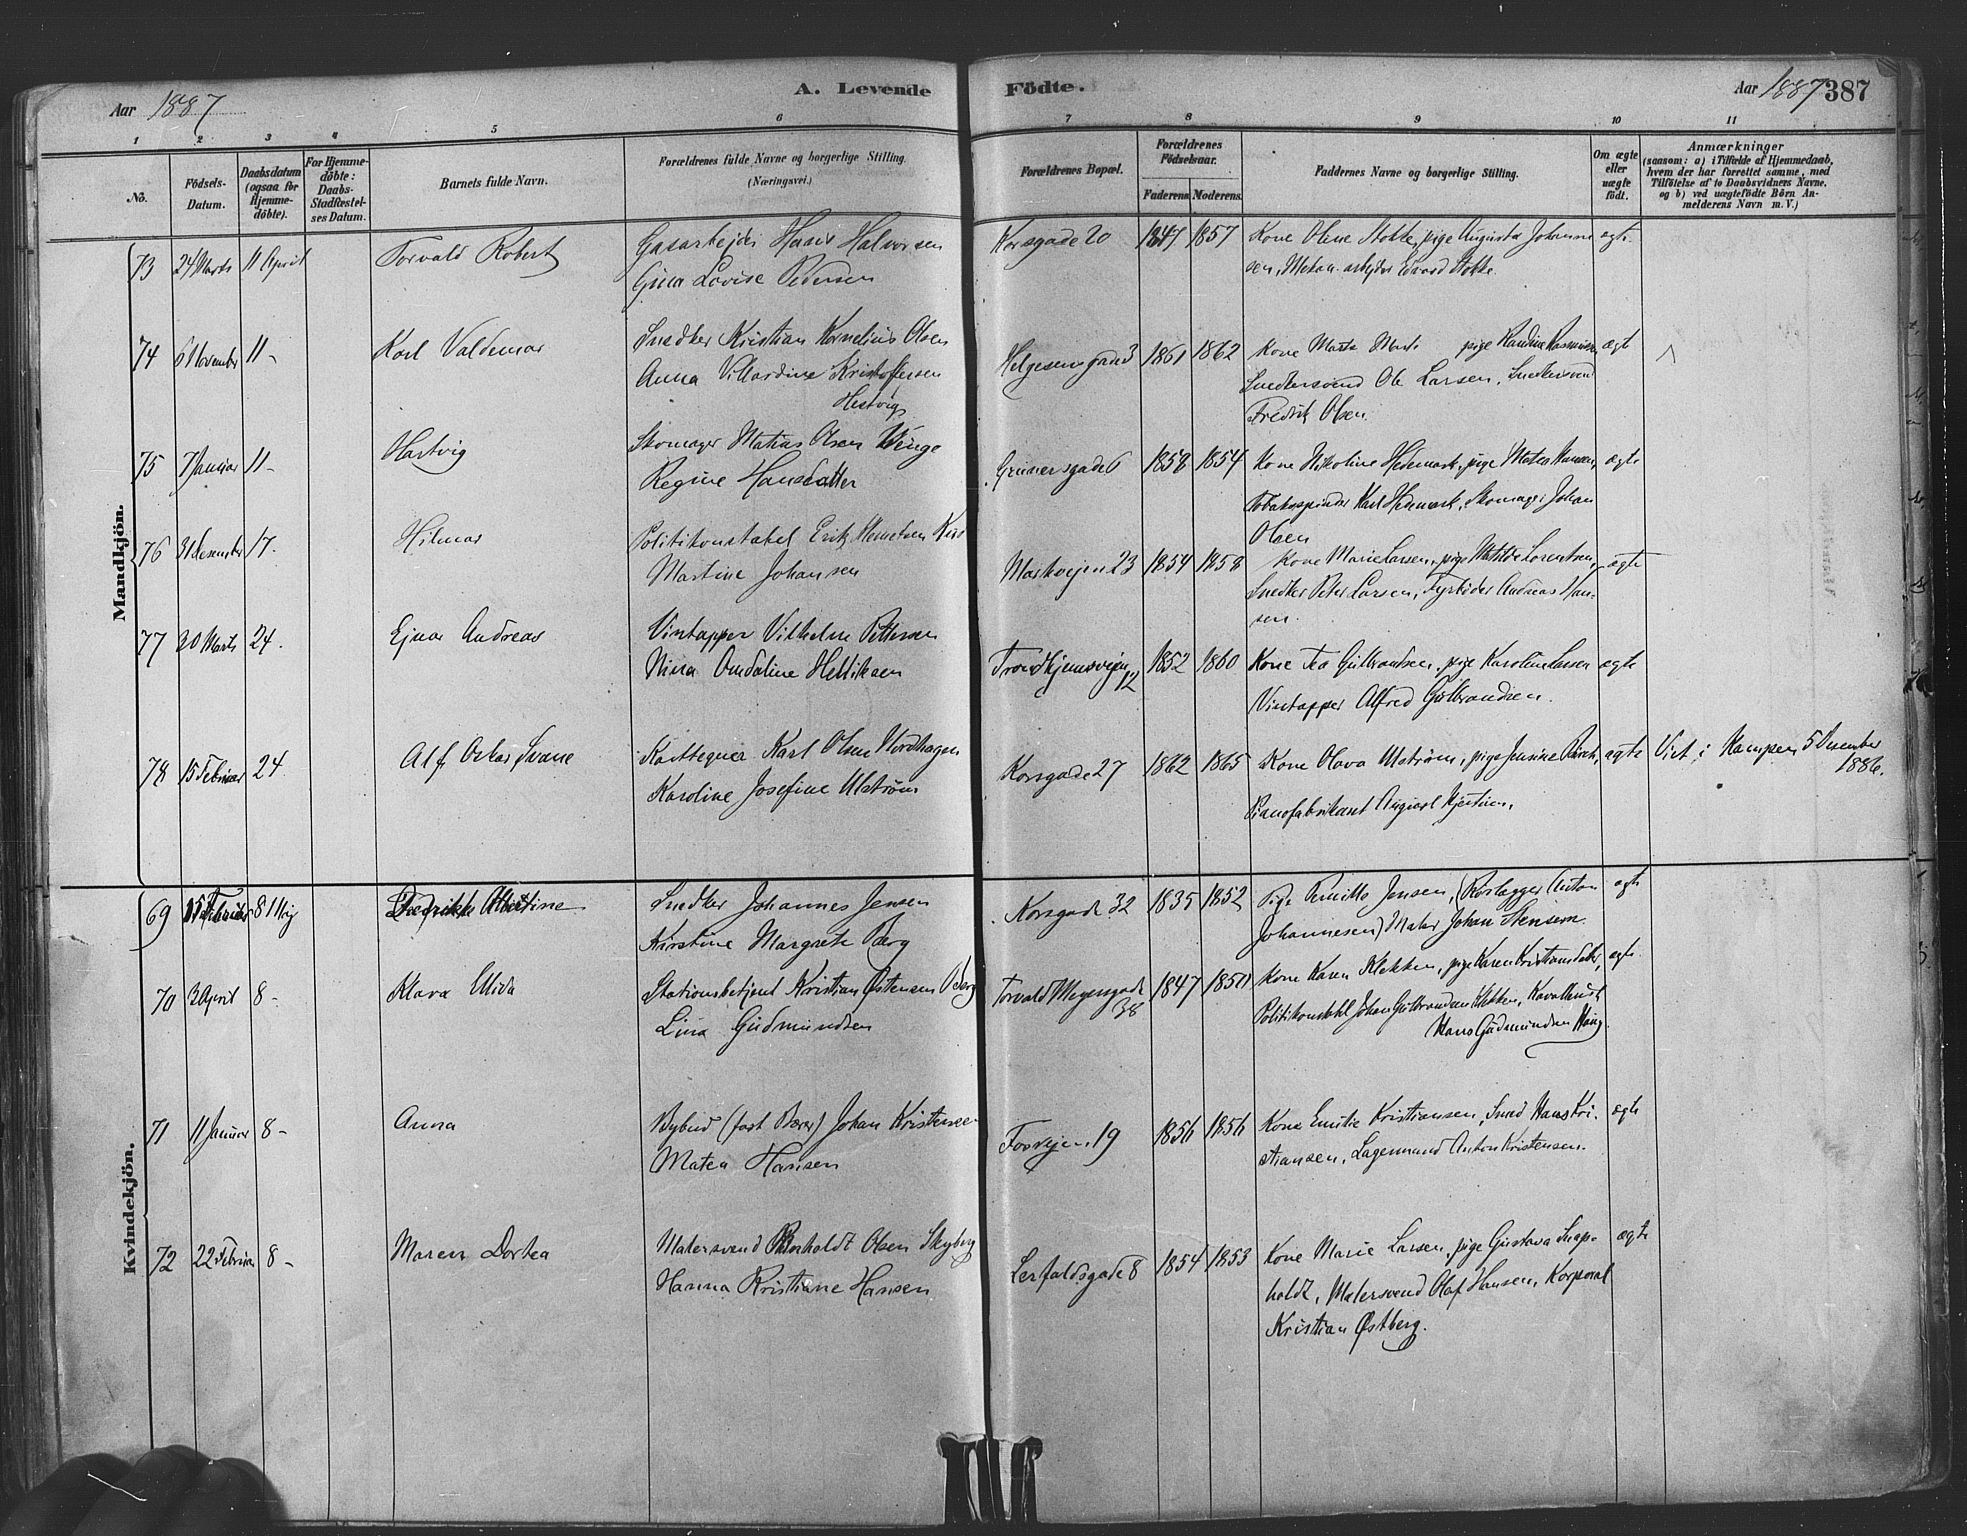 Aar 1887
A. Levende Födte.
Aar 1887 387
1 2 3 4 5 6 7 8 9 10 11
No.
Födsels-Datum.
Daabsdatum (ogsaa for Hjemme-döbte).
For Hjemme-döbte: Daabs-Stadfæstel-ses Datum.
Barnets fulde Navn.
Forældrenes fulde Navne og borgerlige Stilling. (Næringsvei.)
Forældrenes Bopæl.
Forældrenes Födselsaar.
Faderens. Moderens.
Faddernes Navne og borgerlige Stilling.
Om ægte eller uægte födt.
Anmærkninger
(saasom: a) i Tilfælde af Hjemmedaab, hvem der har forrettet samme, med Tilföielse af to Daabsvidners Navne, og b) ved uægtefödte Börn Anmelderens Navn m. V.)
Mandkjön.
73 24 Marts 11 April Torvald Robert Gasarbejder Hans Halvorsen Korsgade 20 1847 1857 Kone Oline Stokke, pige Augusta Johanne ægte
Gina Lovise Pedersen sen, Mekan. arbejder Edvard Stokke.
74 6 November 11 - Karl Valdemar Snedker Kristian Kornelius Olsen Helgesensgade 3 1861 1862 Kone Marte pige Randine Rasmussen ægte
Anna Villardine Kristoffersen Snedkersvend Ole Larsen, Snedkersvend
Hestvig Fredrik Olsen.
75 7 Januar 11 - Hartvig Skomager Matias Olsen Vinge Grünersgade 6 1858 1854 Kone Nikoline Hedemark, pige Matea Hansen, ægte
Regine Hansdatter Tobakspinder Karl Hedemark, Skomager Johan
Olsen
76 31 December 17. Hilmar Politikonstabel Erik Markvejen 23 1854 1858 Kone Marie Larsen, pige Matilde Lorentsen, ægte
Martine Johansen Snedker Peter Larsen, Fyrbøder Andreas Han-
sen.
77 20 Marts 24. Ejnar Andreas Vintapper Vilhelm Pettersen Trondhjemsvejen 12 1852 1860 Kone Tea Gulbrandsen, pige Karoline Larsen ægte
Nina Omdaline Vintapper Alfred Gulbrandsen.
78 15 Februar 24. Alf Oskar Svane Karttegner Karl Olsen Nordhagen Korsgade 27 1862 1865 Kone Olava Ulstrøm, pige Jensine ægte Viet i Kampen 5 December
Karoline Josefine Ulstrøm Pianofabrikant August 1886.
Kvindekjön.
69 15 Februar 8 Maj Fredrikke Albertine Snedker Johannes Jensen Korsgade 32 1835 1852 Pige Jensen, (Anton ægte
Kirstine Margrete Berg Johannesen) Maler Johan Stensen.
70 3 April 8 - Klara Stationsbetjent Kristian Østensen Berg Torvald Meyersgade 38 1847 1850 Kone Karen Klekken, pige Karen Kristiansdatter, ægte.
Lina Gudmundsen Politikonstabel Johan Gulbrandsen Klekken, Kavallerist
Hans Gudmundsen Haug.
71 11 Januar 8 - Anna Bybud (fast Bærer) Johan Kristensen Fosvejen 19 1856 1856 Kone Emilie Kristiansen, Smed Hans Kri- ægte
Matea Hansen stiansen, Lagermand Anton Kristensen.
72 22 Februar 8 - Maren Dortea Malersvend Olsen Skyberg Lerfaldsgade 8 1854 1853 Kone Marie Larsen, pige Gustava Snap- ægte
Hanna Kristiane Hansen holdt, Malersvend Olaf Hansen, Korporal
Kristian Østberg.